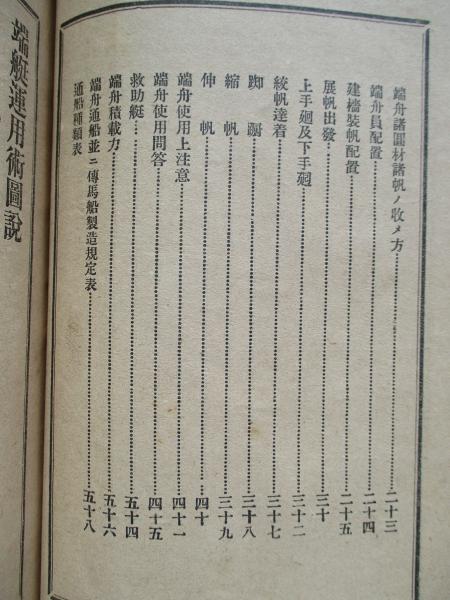 端舟諸圓材諸帆ノ收メ方……二十三
端舟員配置……二十四
建檣裝帆配置……二十五
展帆出發……三十
上手廻及下手廻……三十二
絞帆達着……三十七
踟躕……三十八
縮帆……三十九
伸帆……四十
端舟使用上注意……四十一
端舟使用問答……四十五
救助艇……五十四
端舟積載力……五十六
端舟通船並ニ傳馬船製造規定表……五十八
通船種類表
端艇運用術圖說